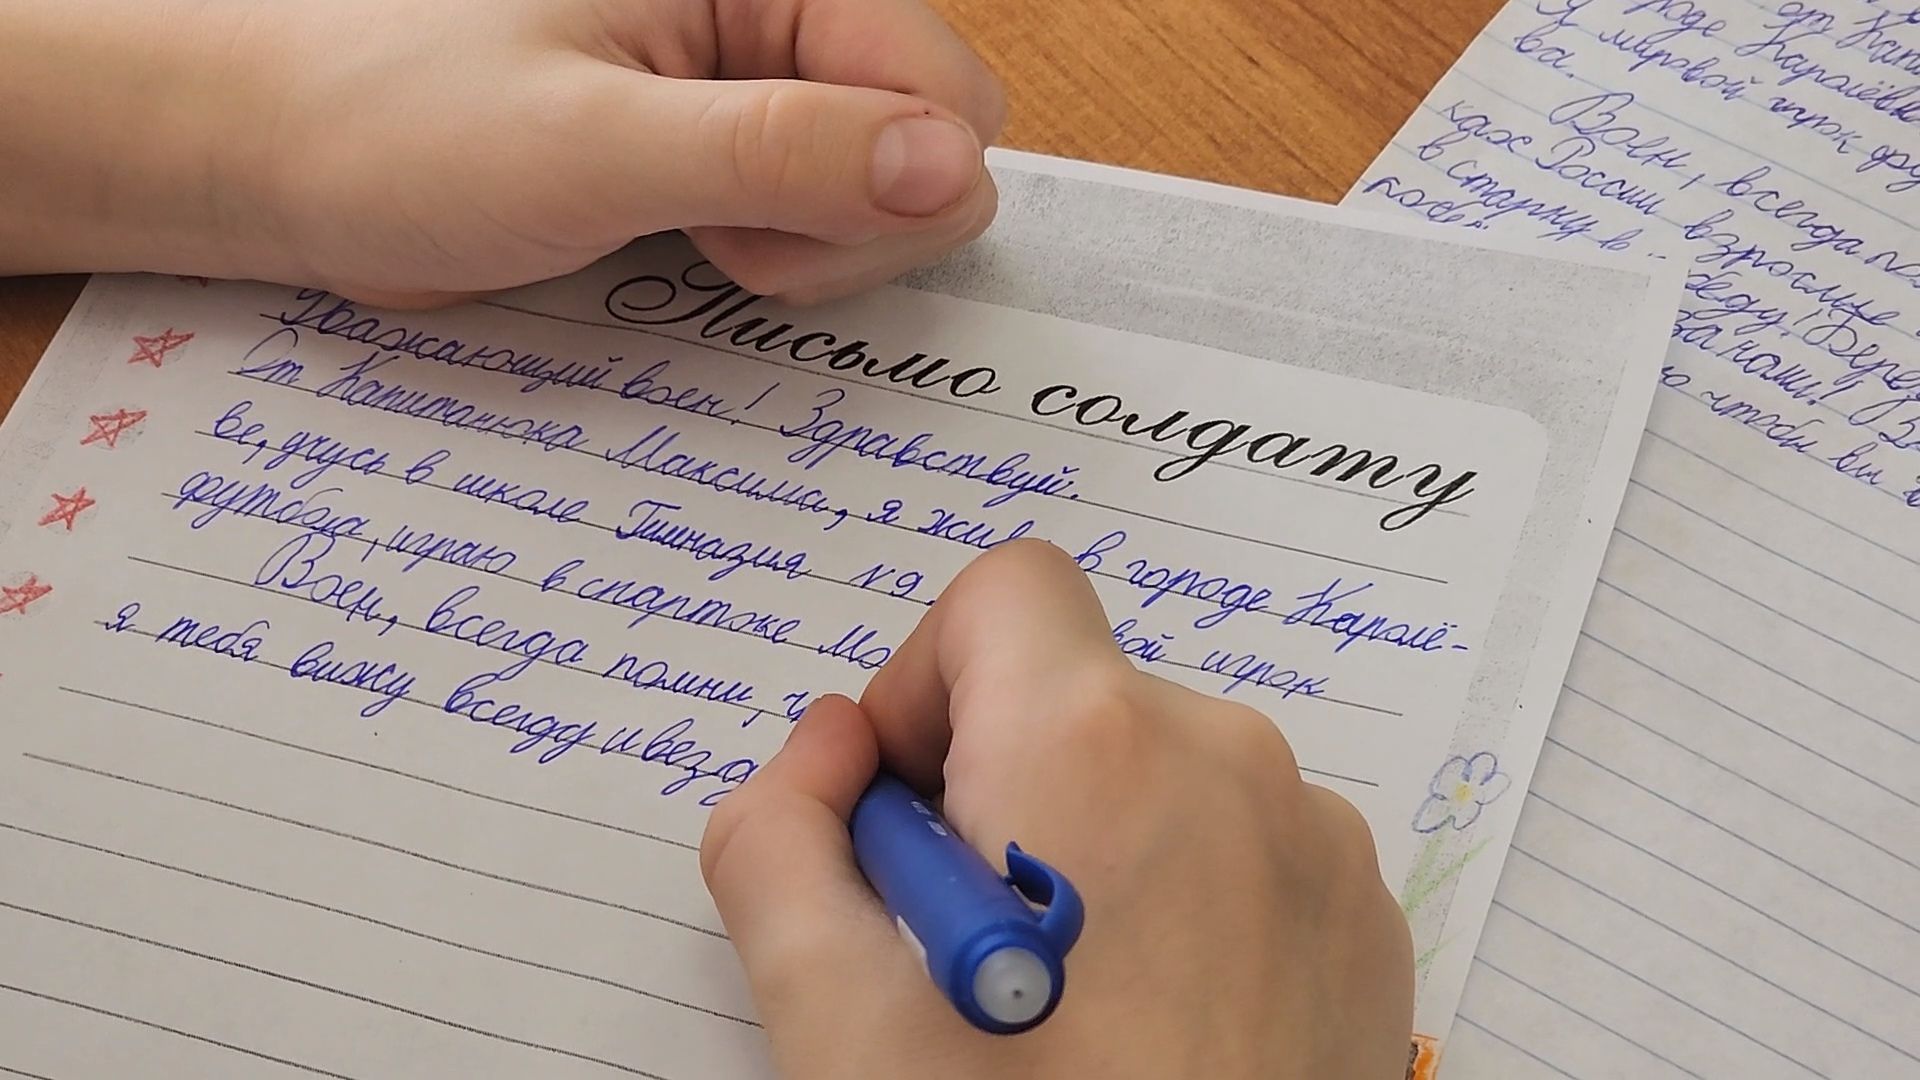 Письмо солдату
Уважающий воен! Здравствуй.
От Капитанюка Максима, я живу в городе Каролё-
ве, учусь в школе Гимназия №9.
футбола, играю в спартоке Мо вой игрок
Воен, всегда помни,
я тебя вижу всегду и везд
от
роде Каролёв
Я мировой игрок фу
ва.
Воен, всегда по
каж России взрослые
в старну в
победу! Берег
За наши! Вз
ю чтобы вы в